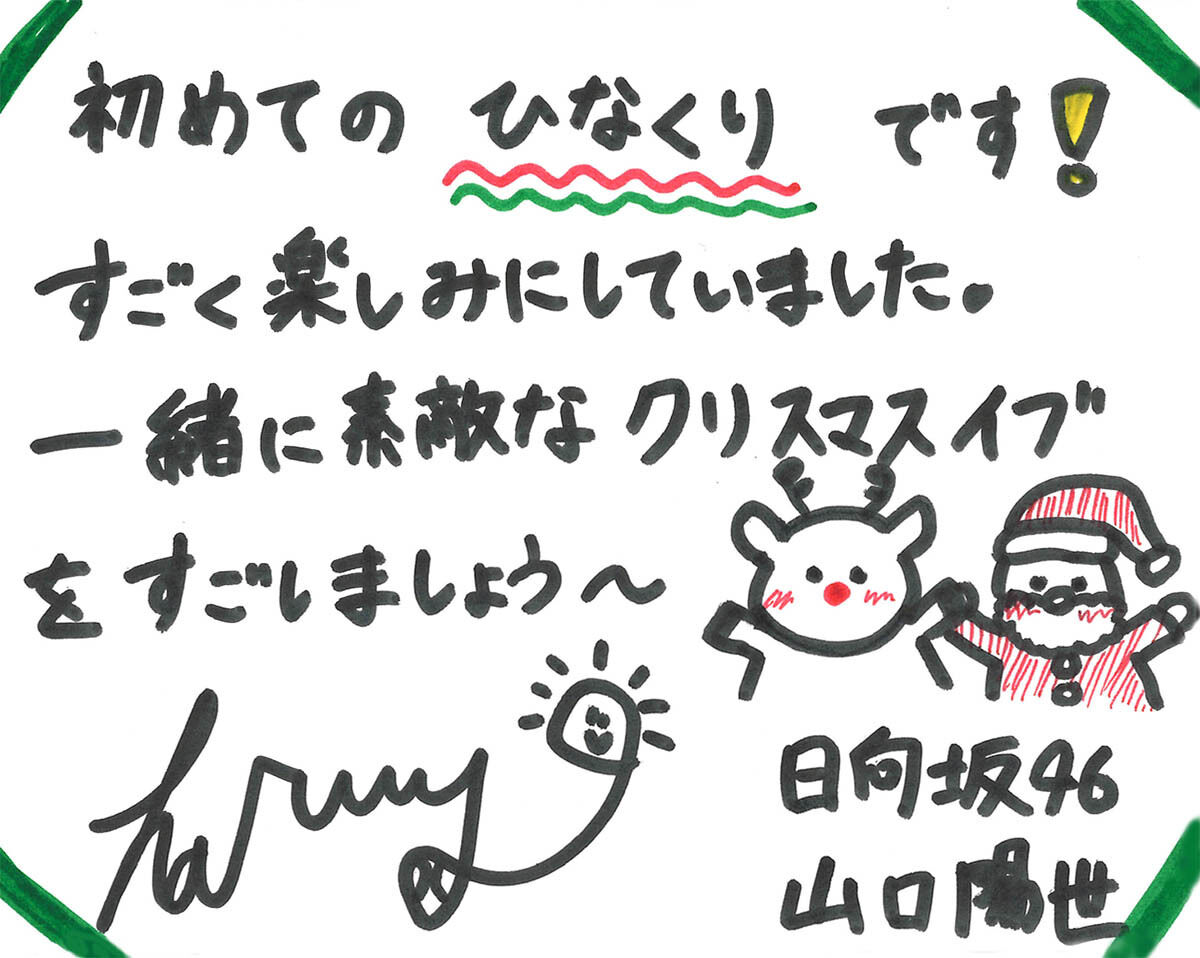 初めての ひなくり です!
すごく楽しみにしていました。
一緒に素敵なクリスマスイブ
をすごしましょう〜
日向坂46
山口陽世